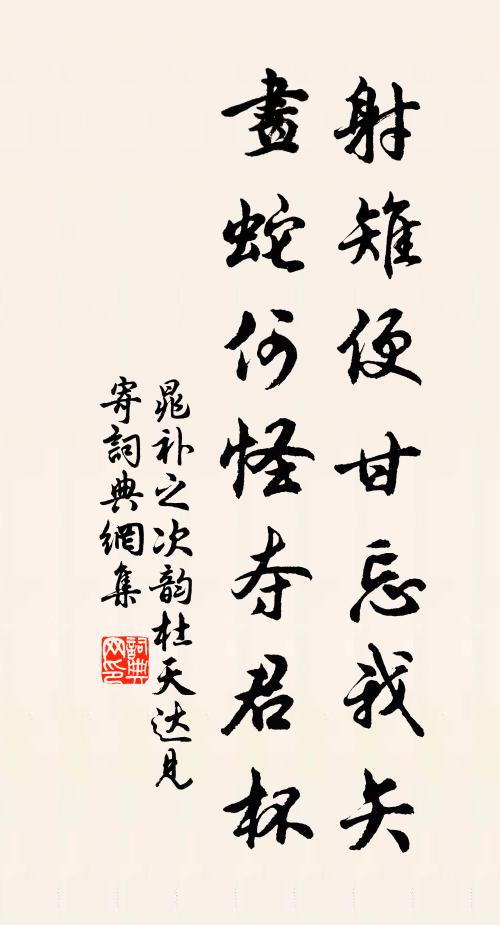 射雉便甘忘我矢
畫蛇何怪夺君杯
晁补之次韵杜天达见
寄詞典網集
詞典網印